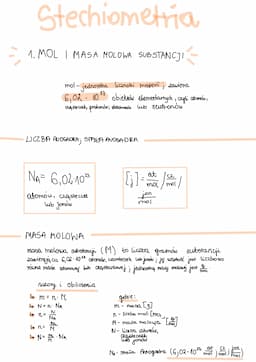 Stechiometria
1. MOL I MASA MOLOWA SUBSTANCJI
mol - jednostka liczności materii, zawiera
6,02 · 10²³ obiektów elementarnych, czyli atomów,
cząsteczek, protonów, elektronów lub neutronów
LICZBA AVOGADRA, STAŁA AVOGADRA
N_A = 6,02·10²³
atomów, cząsteczek
lub jonów
[j] = at./mol / cz./mol /
jon/mol
MASA MOLOWA
masa molowa substancji (M) to liczba gramów substancji
zawierająca 6,02·10²³ atomów, cząsteczek lub jonów; jej wartość jest liczbowo
równa masie atomowej lub cząsteczkowej; jednostką masy molowej jest g/mol
wzory i obliczenia
m = n · M
N = n · N_A
n = m/M
n = N/N_A
N = m/M · N_A
gdzie:
m - masa [g]
n - liczba moli [mol]
M - masa molowa [g/mol]
N - liczba atomów,
cząsteczek
lub jonów
N_A - stała Avogadra (6,02·10²³